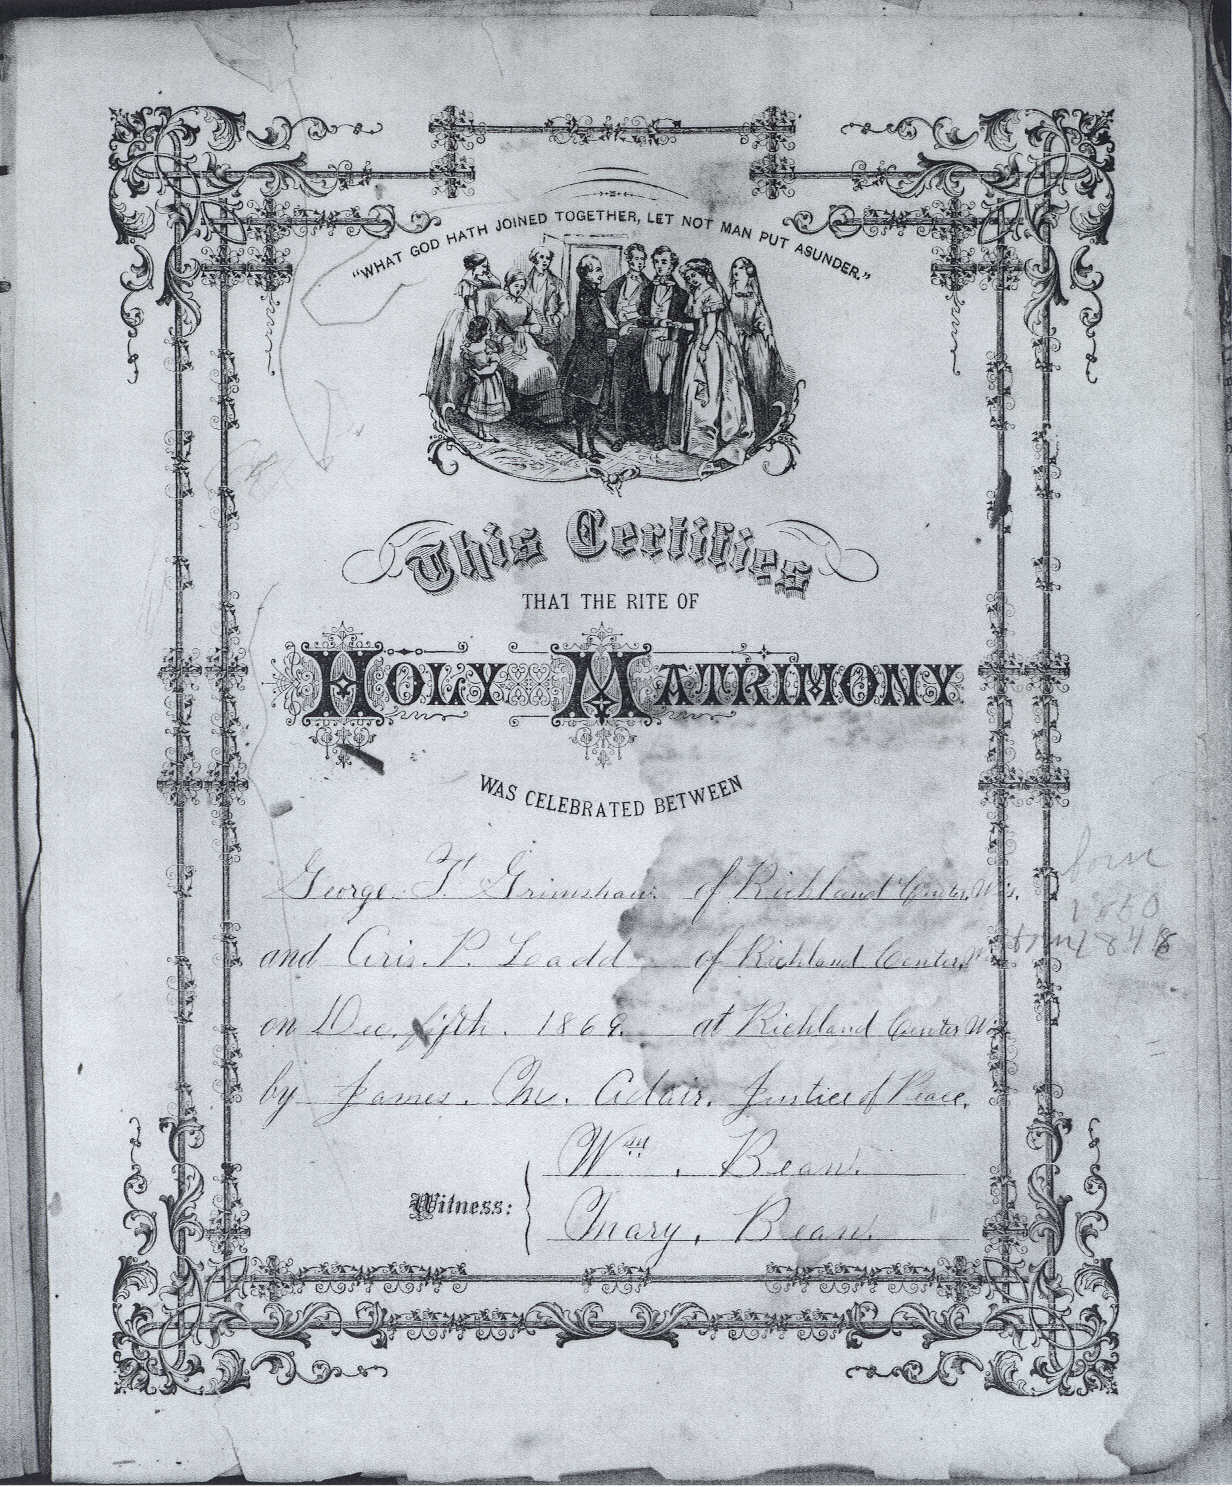 "WHAT GOD HATH JOINED TOGETHER, LET NOT MAN PUT ASUNDER."
This Certifies
THAT THE RITE OF
HOLY MATRIMONY
WAS CELEBRATED BETWEEN
George. F. Grimshaw. of Richland Center, Wis.
and P. Ladd of Richland Center,
on Dec. fifth. 1869. at Richland Center Wis
by James. M. Adair. Justice of Peace.
Witness:
Wm. Bean.
Mary. Bean.
born
1850
born 1848